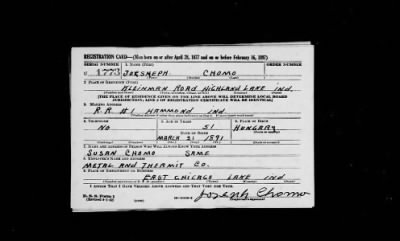 REGISTRATION CARD—(Men born on or after April 28, 1877 and on or before February 16, 1897)
SERIAL NUMBER 1. NAME (Print) ORDER NUMBER
JOESHEPH CHOMO
2. PLACE OF RESIDENCE (Print)
KLEINMAN ROAD HIGHLAND LAKE IND.
[THE PLACE OF RESIDENCE GIVEN ON THE LINE ABOVE WILL DETERMINE LOCAL BOARD
JURISDICTION; LINE 2 OF REGISTRATION CERTIFICATE WILL BE IDENTICAL]
3. MAILING ADDRESS
R.R. #1 HAMMOND IND.
4. TELEPHONE 5. AGE IN YEARS 6. PLACE OF BIRTH
NO 51 HUNGARY
DATE OF BIRTH
MARCH 21 1891
7. NAME AND ADDRESS OF PERSON WHO WILL ALWAYS KNOW YOUR ADDRESS
SUSAN CHOMO SAME
8. EMPLOYER'S NAME AND ADDRESS
METAL AND THERMIT CO.
9. PLACE OF EMPLOYMENT OR BUSINESS
EAST CHICAGO LAKE IND
I AFFIRM THAT I HAVE VERIFIED ABOVE ANSWERS AND THAT THEY ARE TRUE.
D. S. S. Form 1
Joseph Chomo